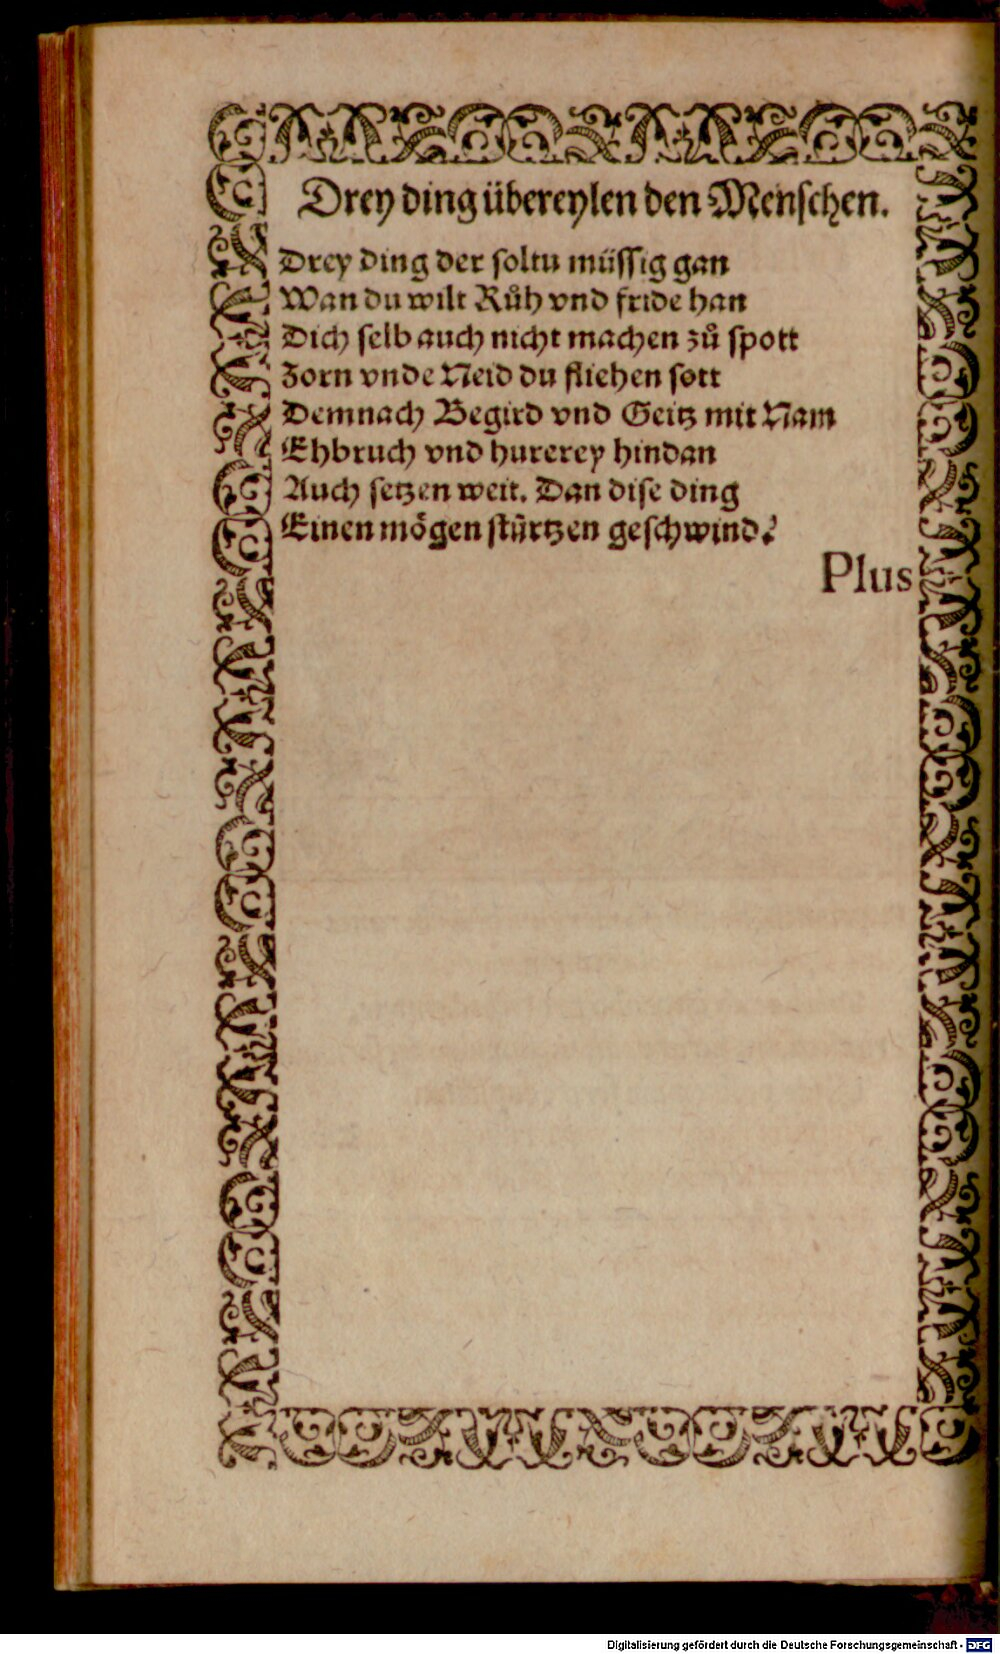 Drey ding übereylen den Menschen.
Drey ding der soltu müssig gan
Wan du wilt Růh vnd fride han
Dich selb auch nicht machen zů spott
Zorn vnde Neid du fliehen sott
Demnach Begird vnd Geitz mit Nam
Ehbruch vnd hurerey hindan
Auch setzen weit. Dan dise ding
Einen mögen stürtzen geschwind?
Plus
Digitalisierung gefördert durch die Deutsche Forschungsgemeinschaft - DFG